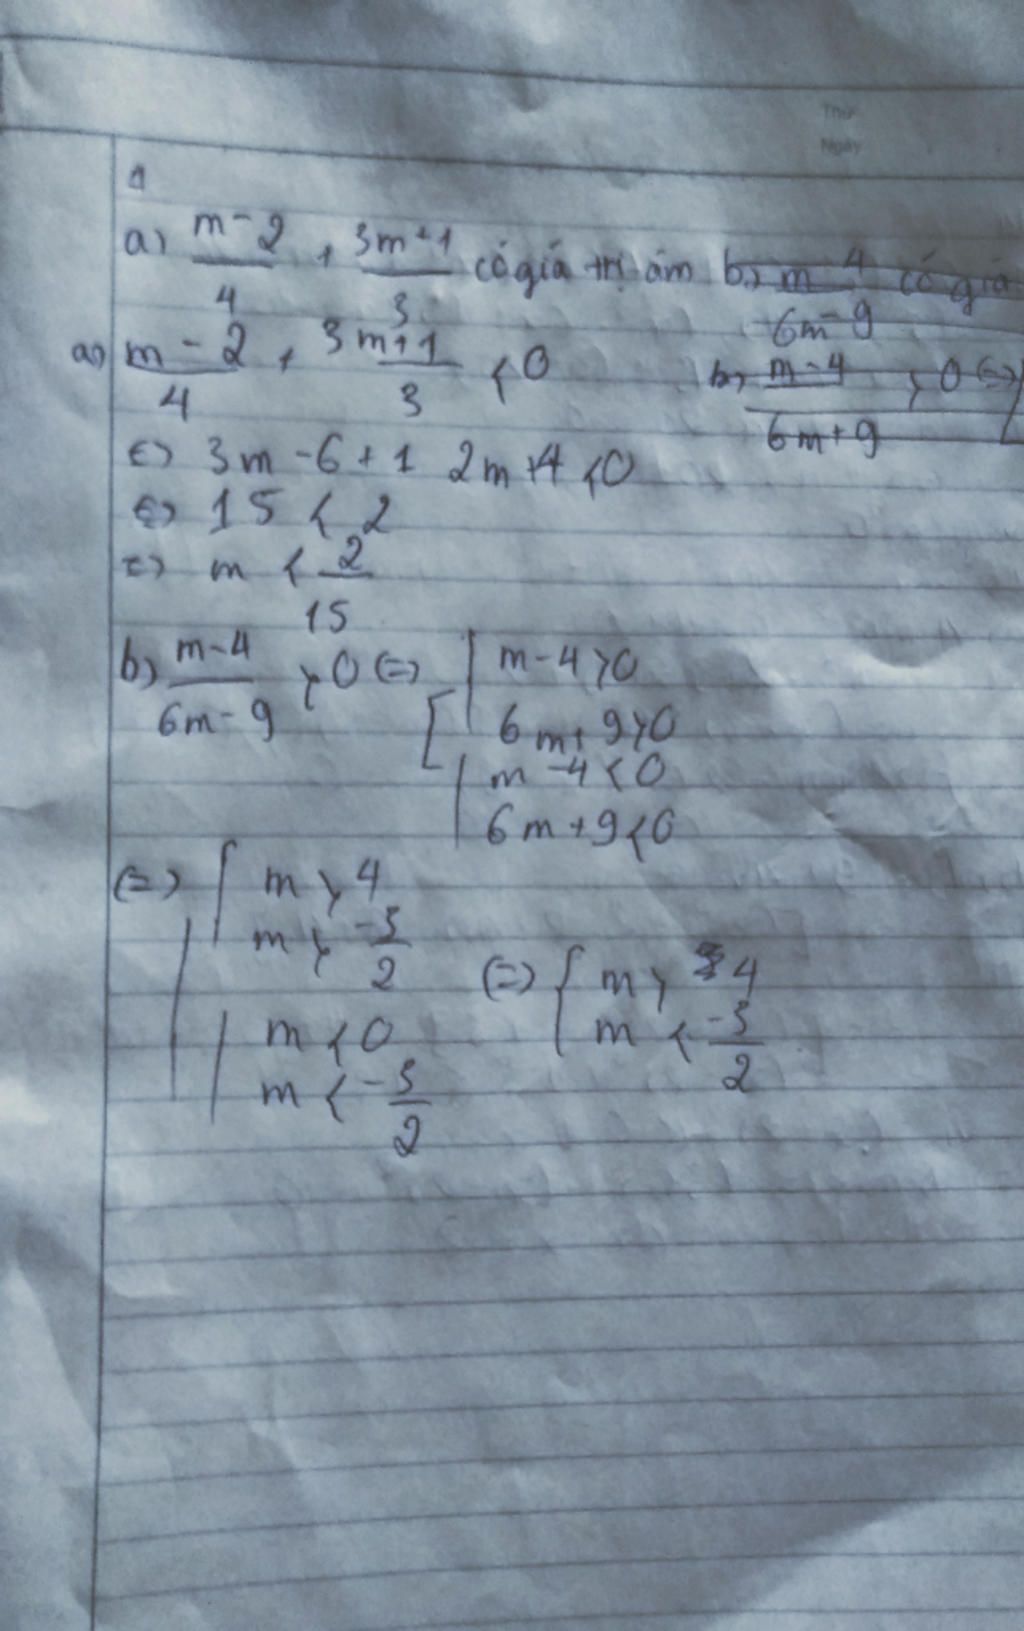 Thứ
Ngày
1
a) m-2/4 + 3m+1/3 có giá trị âm b) m-4/6m-9 có giá
a) m-2/4 + 3m+1/3 < 0
b) m-4/6m+9 > 0 <=>
<=> 3m-6+1 2m+4 < 0
<=> 15 < 2
<=> m < 2/15
b) m-4/6m-9 > 0 (=) [ { m-4 > 0
6m+9 > 0
{ m-4 < 0
6m+9 < 0
(=) { m > 4
m > -3/2
{ m < 0
m < -3/2
(=) { m > 4
m < -3/2